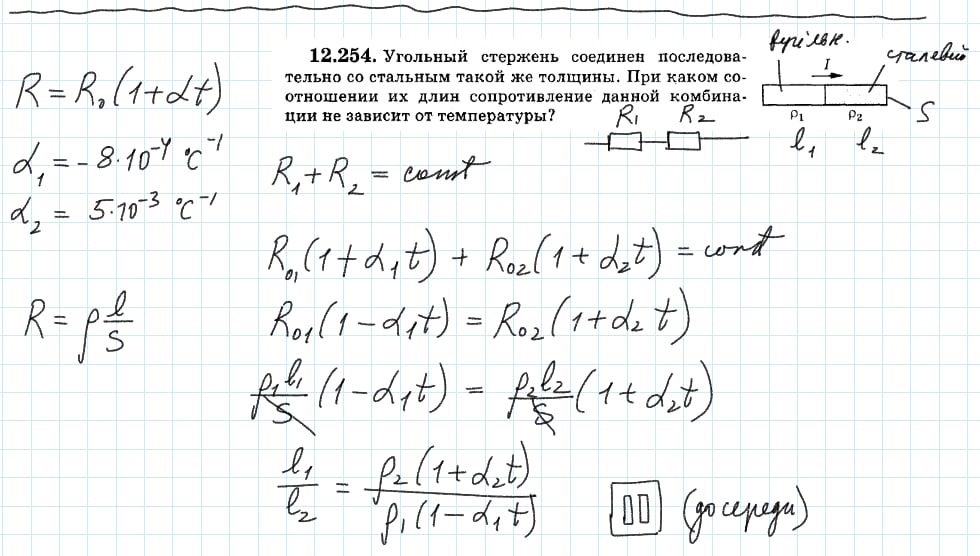 12.254. Угольный стержень соединен последова-
тельно со стальным такой же толщины. При каком со-
отношении их длин сопротивление данной комбина-
ции не зависит от температуры?
вугільн.
сталевий
I
S
ρ₁ ρ₂
l₁ l₂
R₁ R₂
R = R₀(1+αt)
α₁ = -8·10⁻⁴ °C⁻¹
α₂ = 5·10⁻³ °C⁻¹
R = ρ l/S
R₁ + R₂ = const
R₀₁(1+α₁t) + R₀₂(1+α₂t) = const
R₀₁(1-α₁t) = R₀₂(1+α₂t)
ρ₁l₁/S (1-α₁t) = ρ₂l₂/S (1+α₂t)
l₁/l₂ = ρ₂(1+α₂t)/ρ₁(1-α₁t)
(до середи)